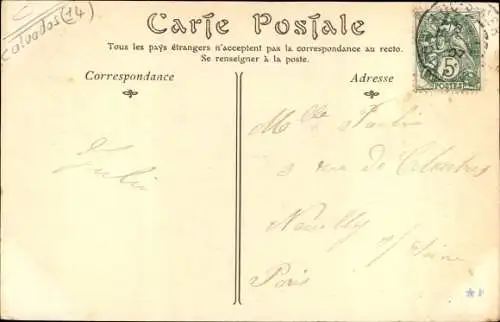 Calvados (14
Carte Postale
Tous les pays étrangers n'acceptent pas la correspondance au recto.
Se renseigner à la poste.
Correspondance
Adresse
5c
POSTES
Julie
Mlle
3 rue de
Neuilly s/Seine
Paris